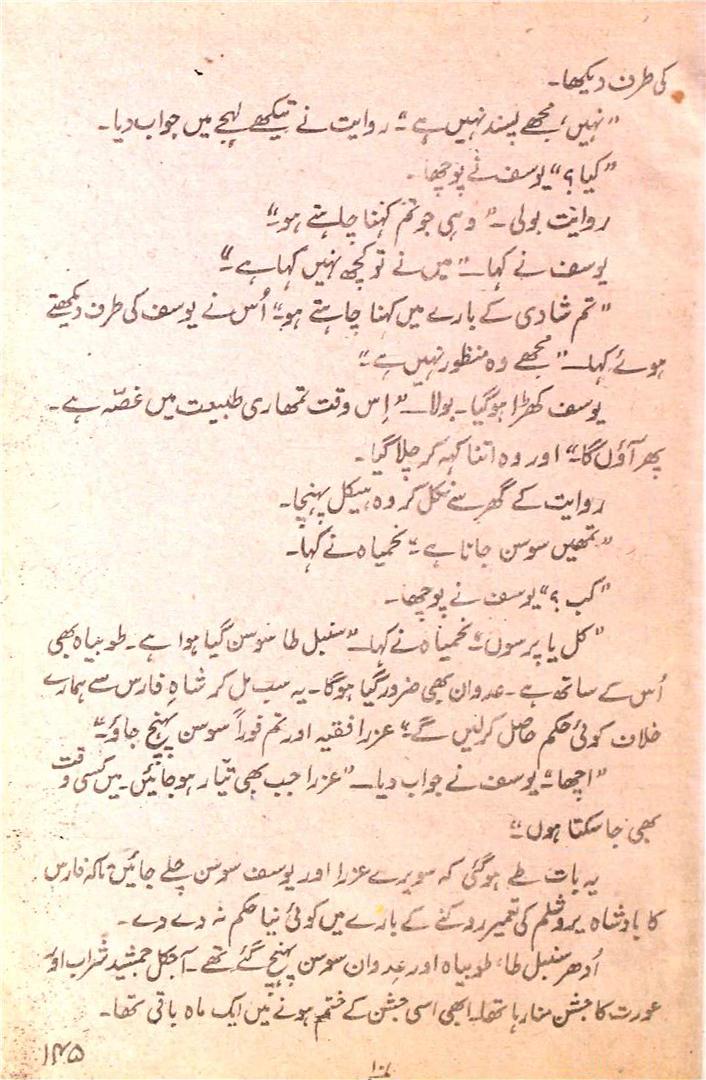 کی طرف دیکھا۔
”نہیں، مجھے پسند نہیں ہے۔“ روایت نے تیکھے لہجے میں جواب دیا۔
”کیا؟“ یوسف نے پوچھا۔
روایت بولی۔ ”وہی جو تم کہنا چاہتے ہو۔“
یوسف نے کہا۔ ”میں نے تو کچھ نہیں کہا ہے۔“
”تم شادی کے بارے میں کہنا چاہتے ہو۔“ اُس نے یوسف کی طرف دیکھتے
ہوئے کہا۔ ”مجھے وہ منظور نہیں ہے۔“
یوسف کھڑا ہو گیا۔ بولا۔ ”اِس وقت تمھاری طبیعت میں غصّہ ہے۔
پھر آؤں گا۔“ اور وہ اتنا کہہ کر چلا گیا۔
روایت کے گھر سے نکل کر وہ ہیکل پہنچا۔
”تمھیں سوسن جانا ہے۔“ نحمیاہ نے کہا۔
”کب؟“ یوسف نے پوچھا۔
”کل یا پرسوں۔“ نحمیاہ نے کہا۔ ”سنبل طا سوسن گیا ہوا ہے۔ طوبیاہ بھی
اُس کے ساتھ ہے۔ عدوان بھی ضرور گیا ہوگا۔ یہ سب مل کر شاہِ فارس سے ہمارے
خلاف کوئی حکم حاصل کرلیں گے۔ عزرا فقیہ اور تم فوراً سوسن پہنچ جاؤ۔“
”اچھا۔“ یوسف نے جواب دیا۔ ”عزرا جب بھی تیّار ہو جائیں۔ میں کسی وقت
بھی جا سکتا ہوں۔“
یہ بات طے ہو گئی کہ سویرے عزرا اور یوسف سوسن چلے جائیں تاکہ فارس
کا بادشاہ یروشلم کی تعمیر روکنے کے بارے میں کوئی نیا حکم نہ دے دے۔
اُدھر سنبل طا، طوبیاہ اور عدوان سوسن پہنچ گئے تھے۔ آجکل جمشید شراب اور
عورت کا جشن منا رہا تھا۔ ابھی اسی جشن کے ختم ہونے میں ایک ماہ باقی تھا۔
۱۴۵